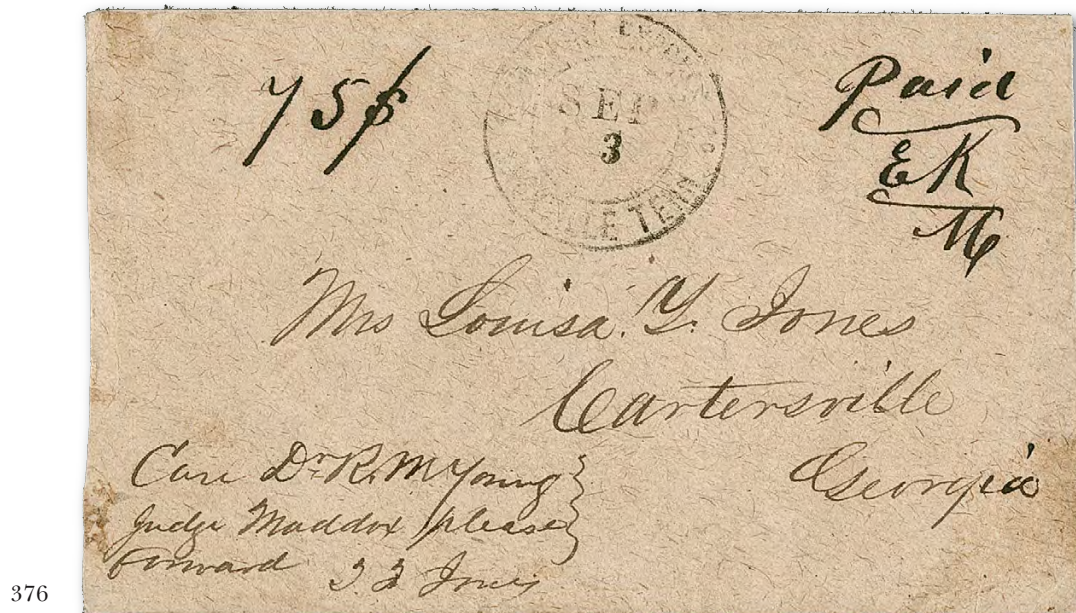 75¢
SEP
3
VILLE TENN
Paid
EK
M
Mrs Louisa Y. Jones
Cartersville
Georgia
Care Dr R. M Young
Judge Maddox please
forward
Jones
376